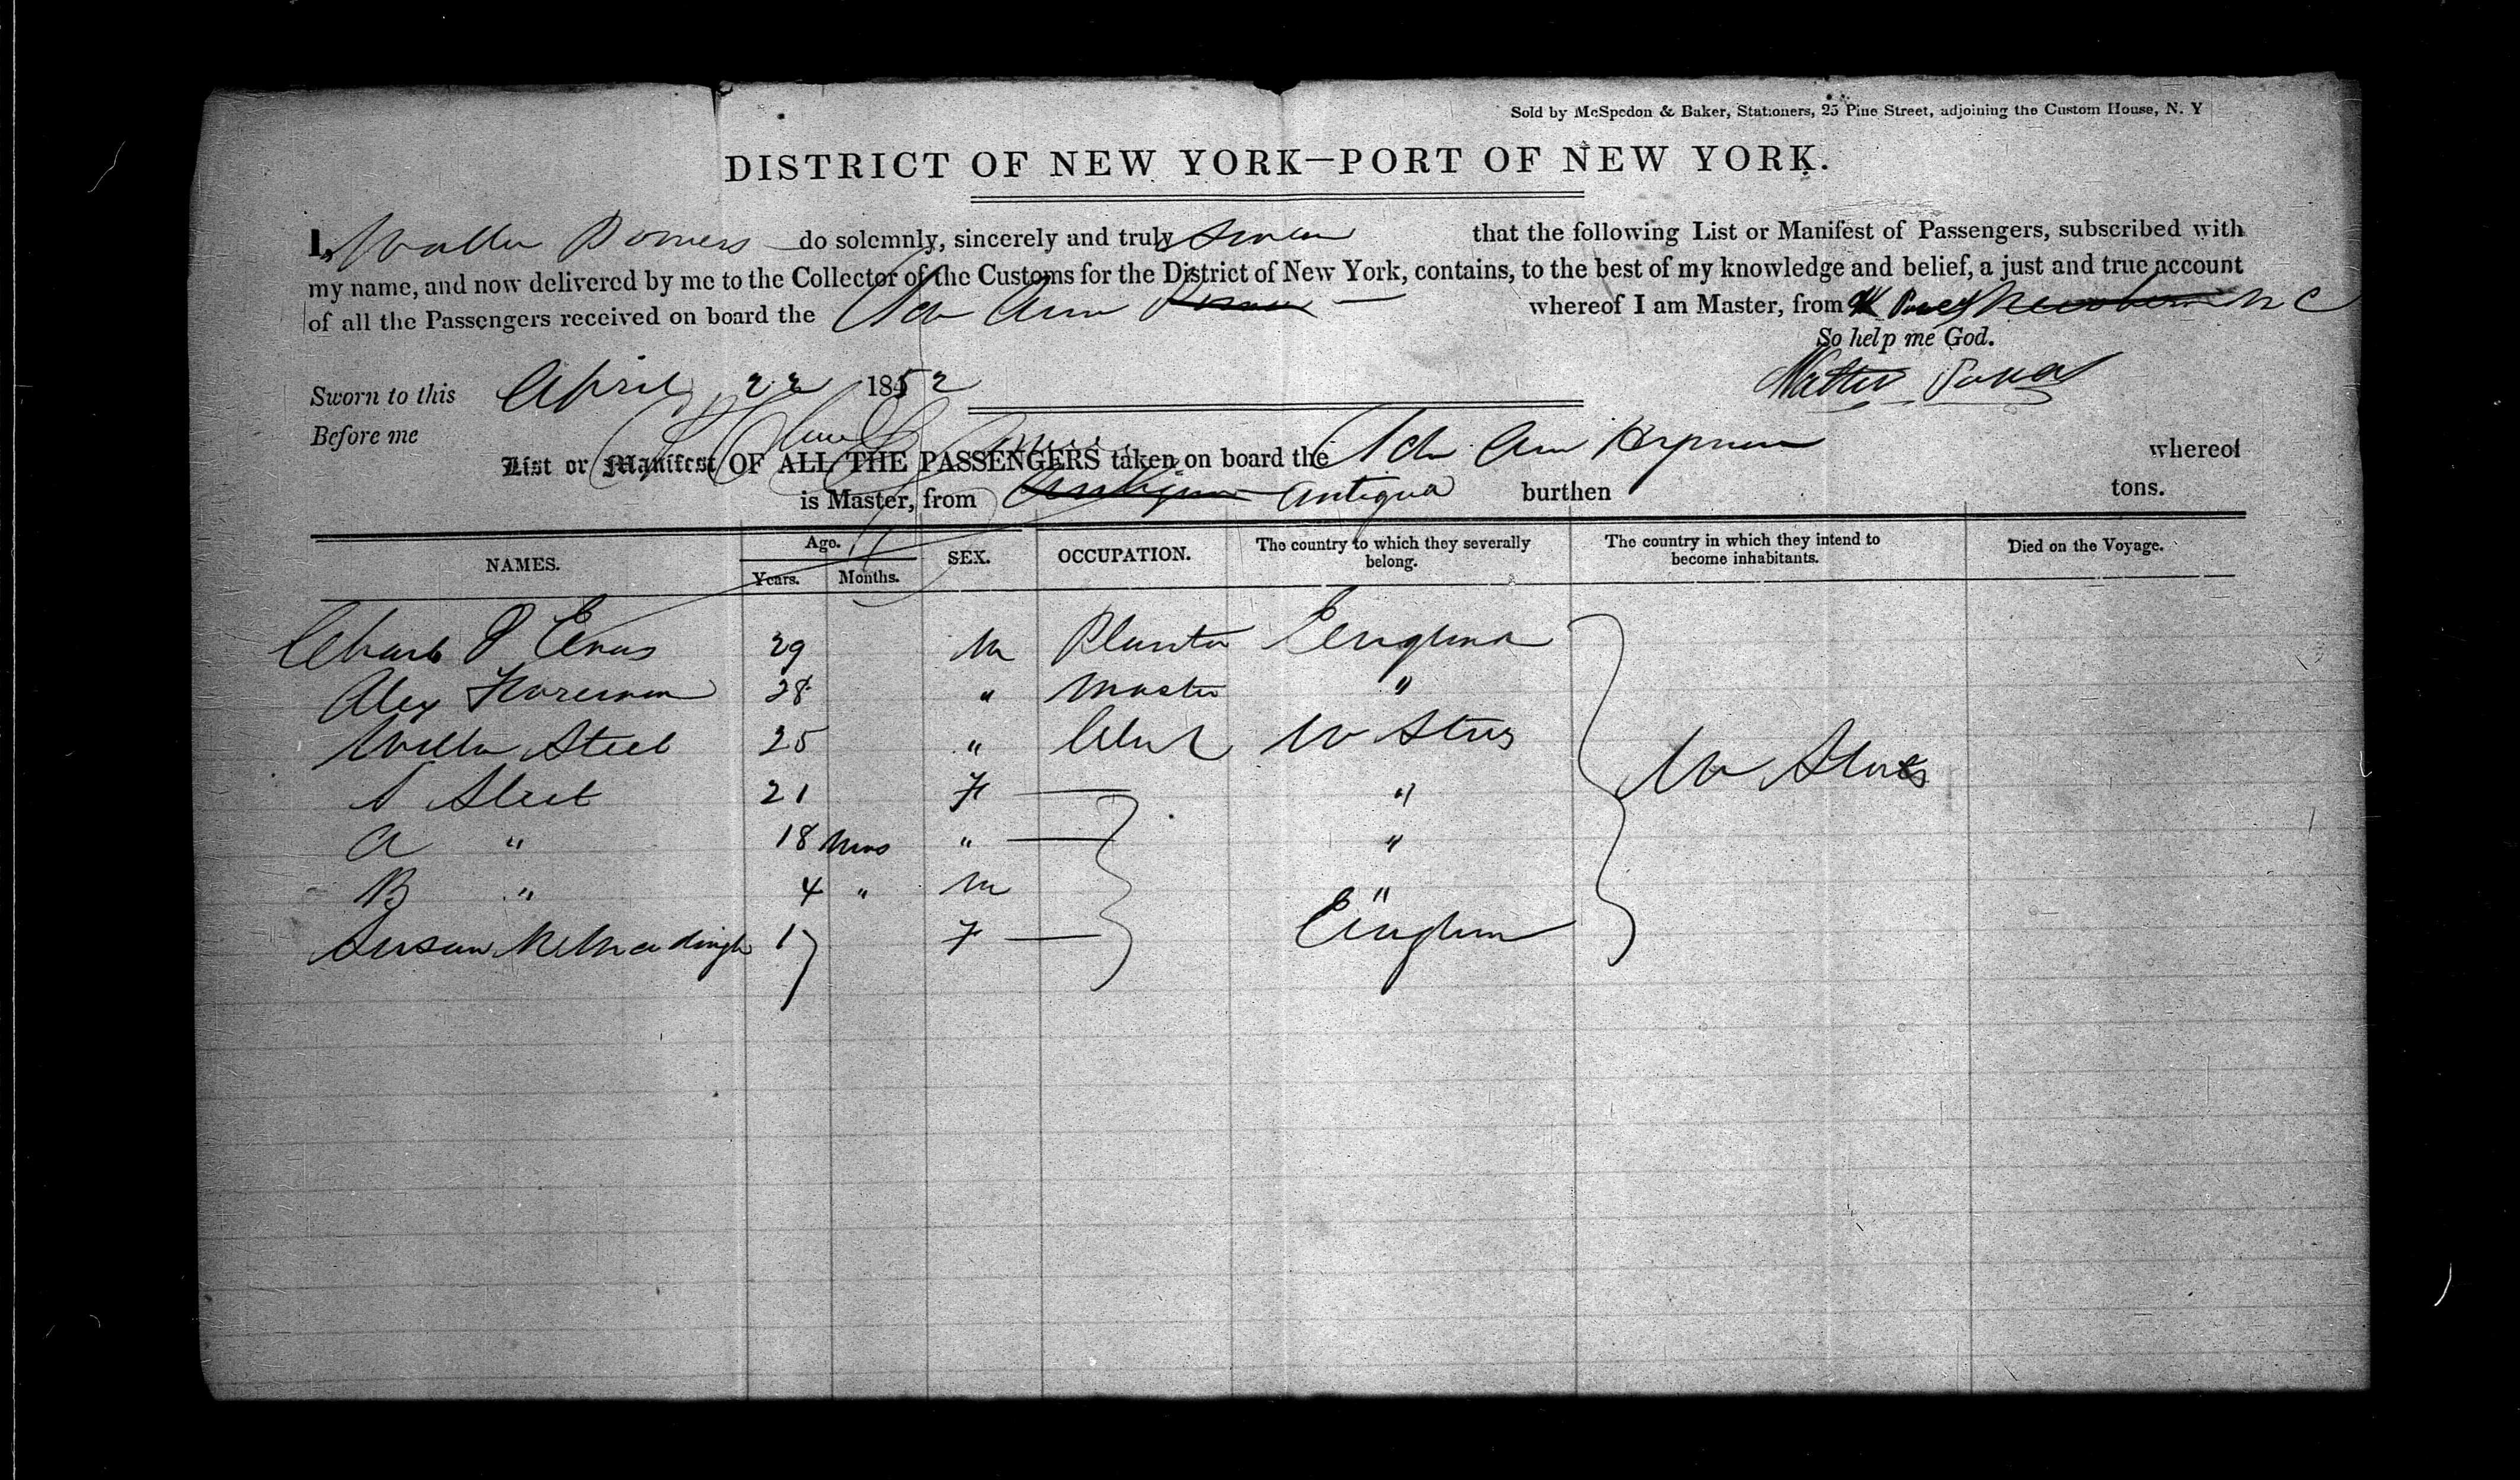 Sold by McSpedon & Baker, Stationers, 25 Pine Street, adjoining the Custom House, N. Y
DISTRICT OF NEW YORK—PORT OF NEW YORK.
I, Walter Powers do solemnly, sincerely and truly swear that the following List or Manifest of Passengers, subscribed with
my name, and now delivered by me to the Collector of the Customs for the District of New York, contains, to the best of my knowledge and belief, a just and true account
of all the Passengers received on board the Sch Ann whereof I am Master, from N C
So help me God.
Sworn to this April 22 1852 Walter Powers
Before me
List or Manifest OF ALL THE PASSENGERS taken on board the Sch Ann whereof
is Master, from Antigua Antigua burthen tons.
NAMES. Age. Years. Months. SEX. OCCUPATION. The country to which they severally belong. The country in which they intend to become inhabitants. Died on the Voyage.
Charls 29 M Planter England
Alex 28 " Master "
Walter Steel 25 " Clerk U States
S Steel 21 F — " U States
A " 18 Mos " — "
B " 4 " M "
Susan 17 F — England